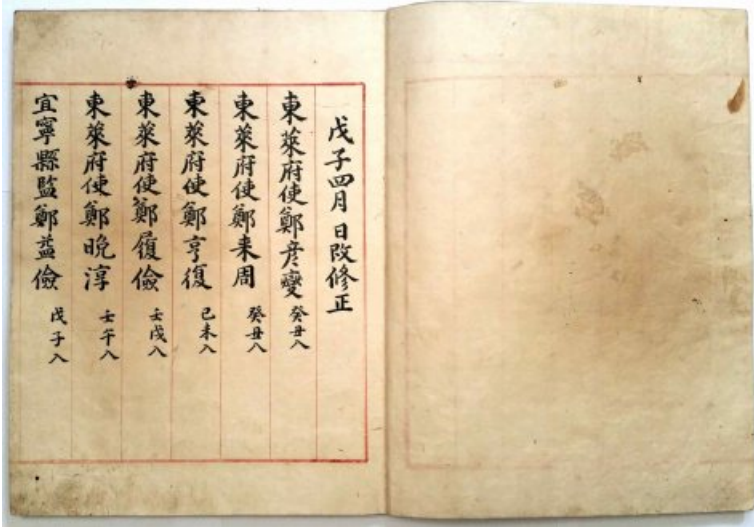 戊子四月 日改修正
東萊府使鄭彦燮 癸丑入
東萊府使鄭来周 癸丑入
東萊府使鄭亨復 己未入
東萊府使鄭履儉 壬戌入
東萊府使鄭晩淳 壬午入
宜寧縣監鄭益儉 戊子入